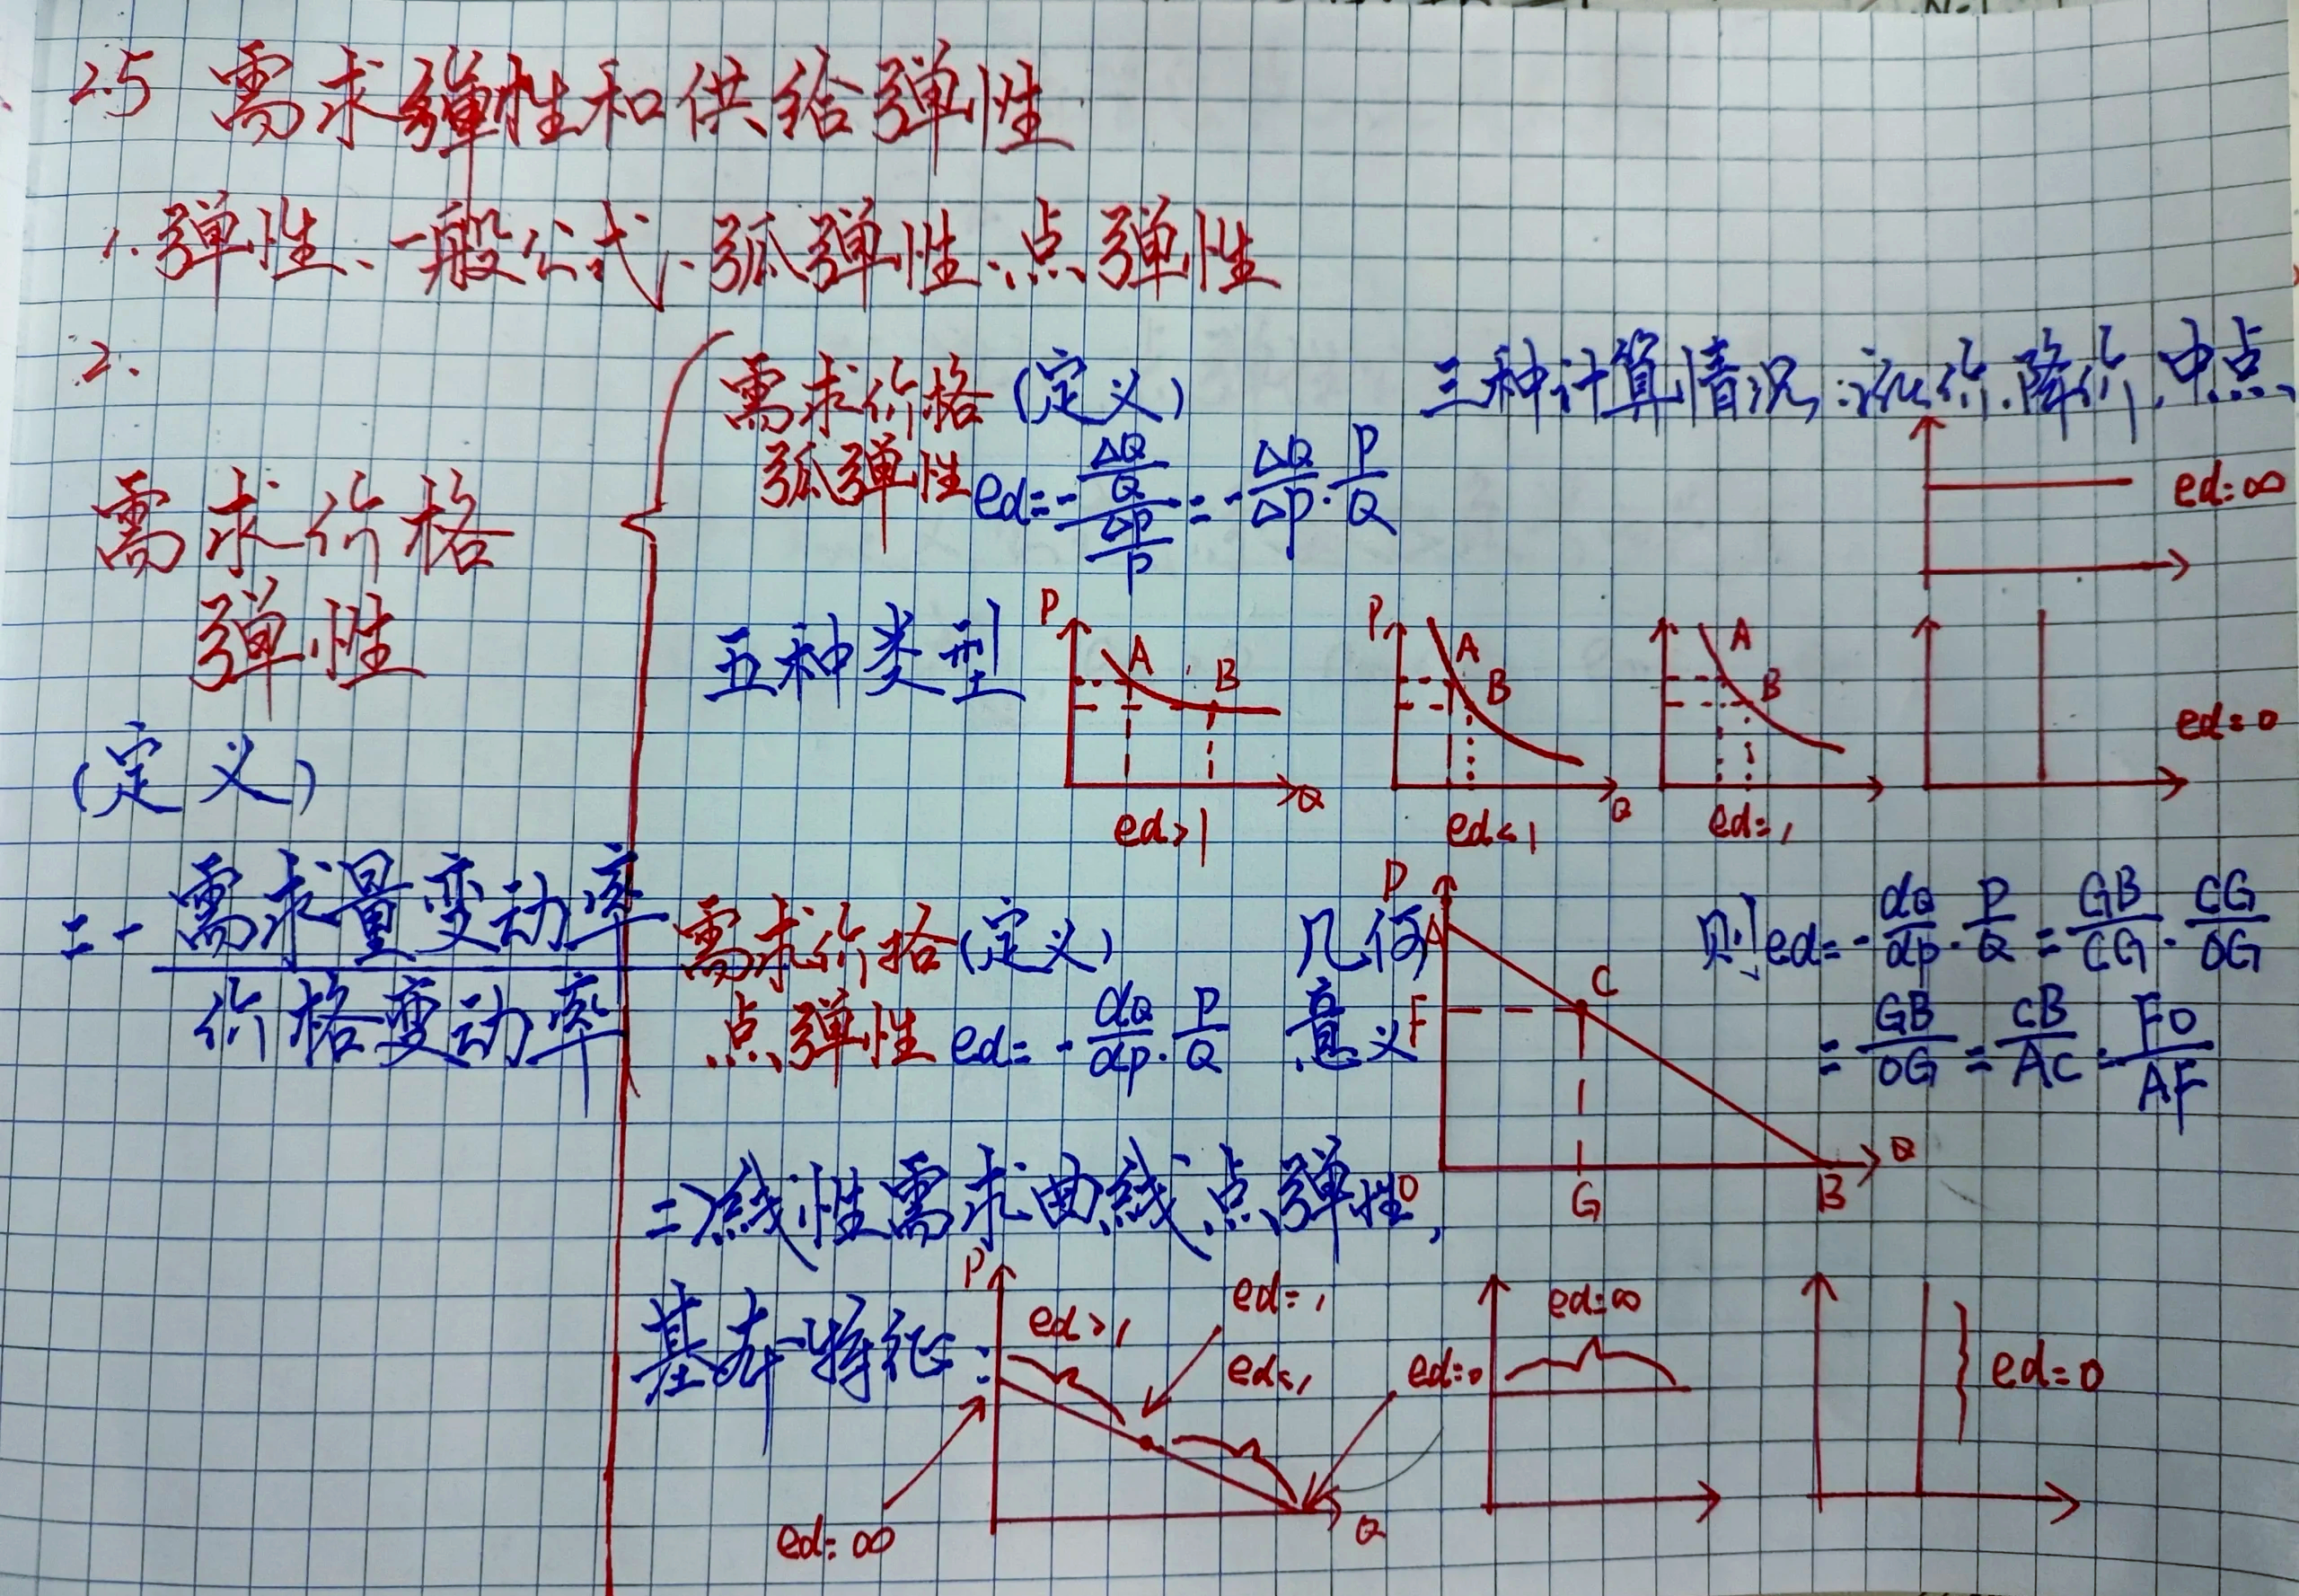 2.5 需求弹性和供给弹性
1.弹性、一般公式、弧弹性、点弹性
2.
需求价格
弹性
(定义)
= - 需求量变动率
价格变动率
需求价格 (定义)
弧弹性 ed=-(ΔQ/Q)/(ΔP/P)=-ΔQ/ΔP·P/Q
三种计算情况:涨价、降价、中点、
ed=∞
五种类型
P A B Q
ed>1
P A B Q
ed<1
A B
ed=1
ed=0
需求价格(定义)
点弹性 ed=-dQ/dP·P/Q
几何
意义
P A C F O G B Q
则ed=-dQ/dP·P/Q=GB/CG·CG/OG
=GB/OG=CB/AC=FO/AF
=>线性需求曲线点弹性,
基本特征:
P
ed>1
ed=1
ed<1
ed=0
ed=∞
Q
ed=∞
ed=0